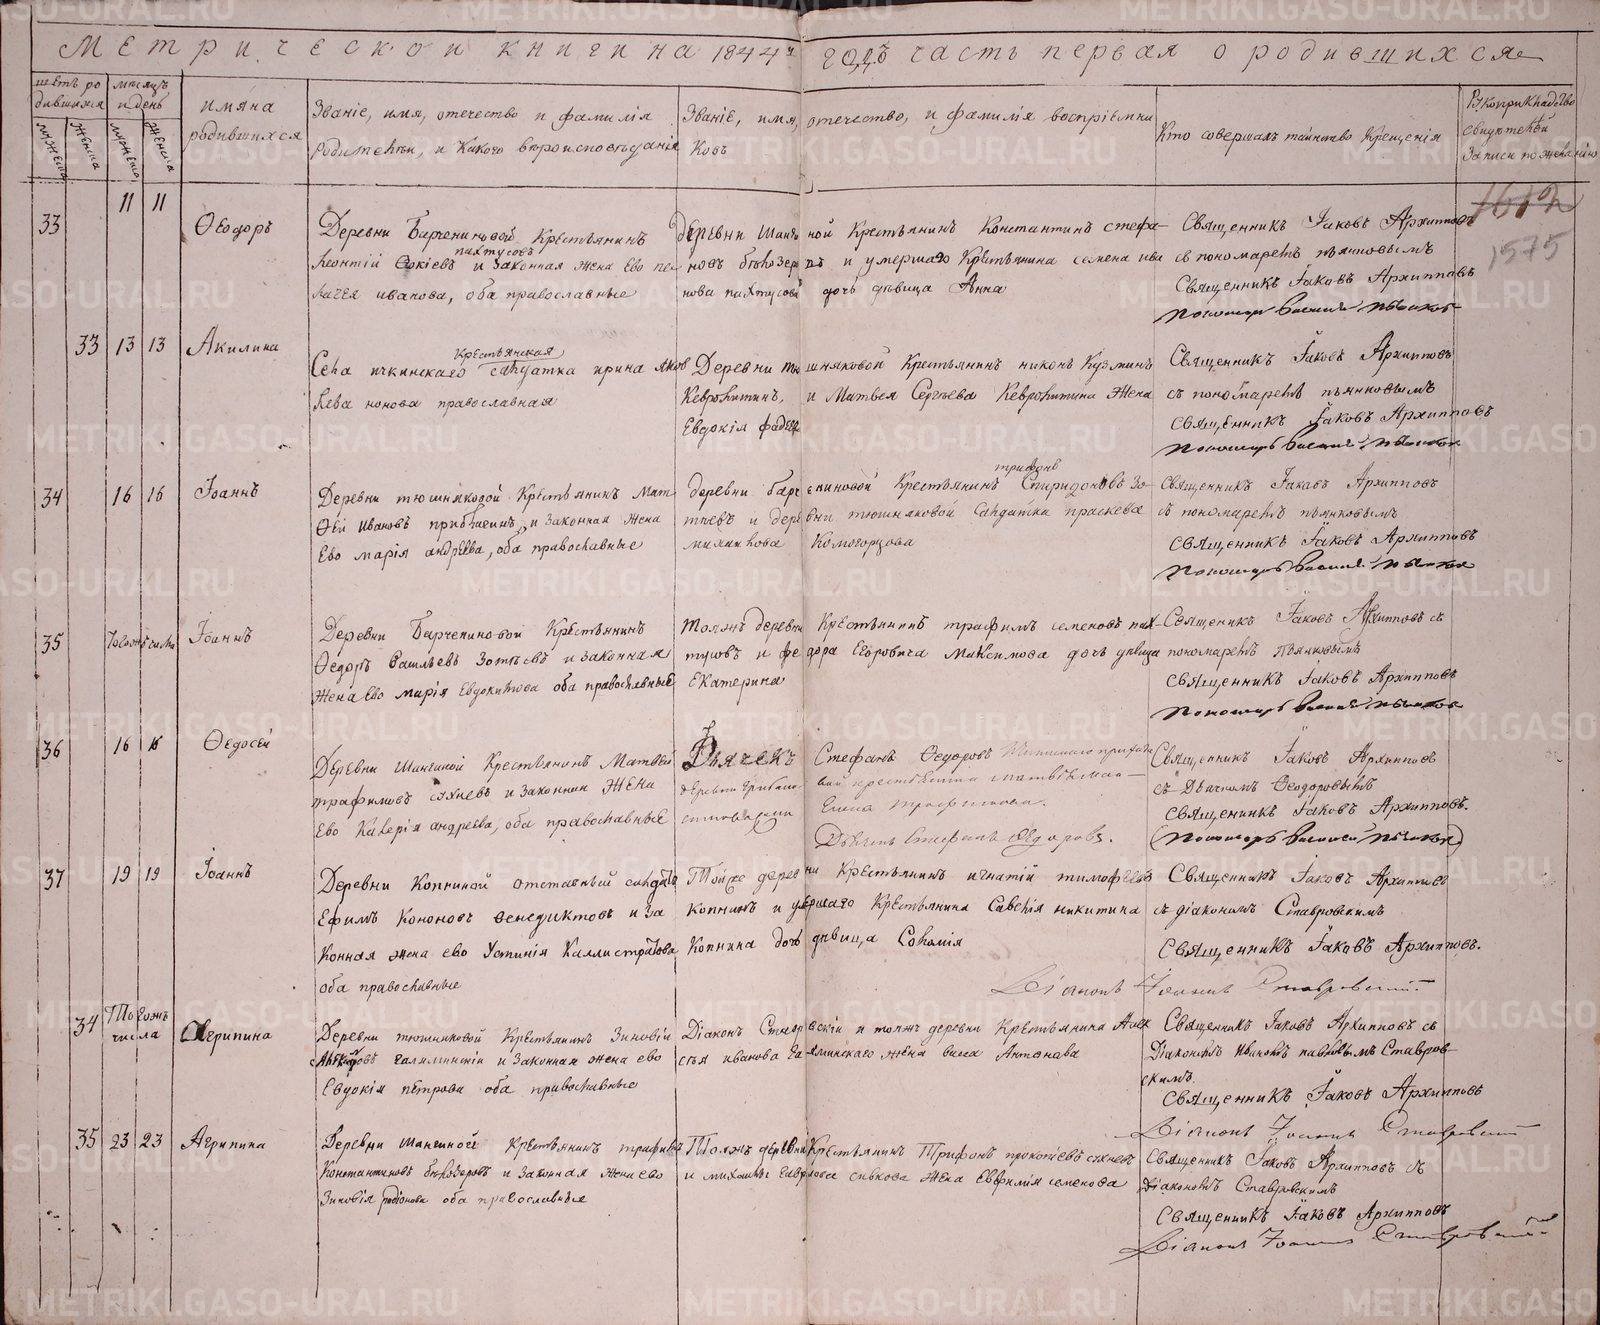 Метрической книги на 1844й годъ часть первая о родившихся
щетъ ро
дившихся
мѣсяцъ
и день
имяна
родившихся
Званіе, имя, отечество и фамилія
родителей, и какого вѣроисповѣданія
Званіе, имя, отечество, и фамилія воспріемни
ковъ
Кто совершалъ таинство крещенія
Рукоприкладство
свидетелей
записи по желанію
мужеска
женска
мужеска
женска
1612
1575
33
11 11
Ѳеодоръ
Деревни Барчениновой Крестьянинъ
пахтусовъ
Леонтій и законная жена ево пе
лагея иванова, оба православные
деревни Шанги ной Крестьянинъ Константинъ стефа
новъ бѣлозеровъ и умершаго Крестьянина семена ива
нова пахтусова дочь дѣвица Анна
Священникъ Іаковъ Архипповъ
съ пономаремъ пьянковымъ
Священникъ Іаковъ Архипповъ
Пономарь Василей Пьянков
33 13 13
Акилина
крестьянская
Села ичкинскаго салдатка ирина яков
лева конова православная
Деревни тю шняковой Крестьянинъ никонъ Кузминъ
Кевролитинъ, и Матвея Сергѣева Кевролитина жена
Евдокія фадеев
Священникъ Іаковъ Архипповъ
съ пономаремъ пьянковымъ
священникъ Іаковъ Архипповъ
Пономарь Василей Пьянков
34
16 16
Іоаннъ
Деревни тюшняковой Крестьянинъ Мат
ѳей Ивановъ прибылин, и законная жена
Ево марія андреева, оба православные
деревни барч ениновой Крестьянинъ Спиридоновъ Зо
трифонъ
тѣевъ и дере вни тюшняковой Салдатка праскева
Комогорцова
Священникъ Іаковъ Архипповъ
съ пономаремъ пьянковымъ
священникъ Іаковъ Архипповъ
Пономарь Василей Пьянков
35
Того жъ числа
Іоаннъ
Деревни Барчениновой Крестьянинъ
Ѳедоръ Васильевъ Зотѣевъ и законная
жена ево марія Евдокимова оба православные
Тояжъ деревни Крестьянинъ трафимъ семеновъ пах
тусовъ и фе дора Егоровича Максимова дочь дѣвица
Екатерина
Священникъ Іаковъ Архипповъ съ
пономаремъ Пьянковымъ
священникъ Іаковъ Архипповъ
Пономарь Василей Пьянков
36
16 16
Ѳедосей
Деревни Шангиной Крестьянинъ Матвей
трафимовъ сухневъ и законная жена
Ево Калерія андреева, оба православные
Дьячекъ Стефанъ Ѳедоровъ
деревни
Елена Трофимова.
Дьячекъ Стефанъ Ѳедоровъ.
Священникъ Іаковъ Архипповъ
съ Дьячкомъ Ѳеодоровымъ
священникъ Іаковъ Архипповъ.
(Пономарь Василей Пьянков)
37
19 19
Іоаннъ
Деревни Копниной отставный салдатъ
Ефимъ Кононовъ Венедиктовъ и за
конная жена ево Устинія Каллистратова
оба православные
Тойже дерев ни Крестьянинъ игнатій тимофеевъ
Копнинъ и умершаго Крестьянина Савелія никитина
Копнина дочь дѣвица Соломія
Священникъ Іаковъ Архипповъ
съ діакономъ Ставровскимъ
Священникъ Іаковъ Архипповъ.
Діаконъ Іоаннъ Ставровскій
34
Того жъ
числа
Агрипина
Деревни тюшняковой Крестьянинъ Зиновій
галяминскій и законная жена ево
Евдокія петрова оба православные
Діаконъ Ставровскіи и тояжъ деревни Крестьянина Алек
сѣя иванова галяминскаго жена васса Антонова
Священникъ Іаковъ Архипповъ съ
Діакономъ Иваномъ павловымъ Ставров
скимъ
священникъ Іаковъ Архипповъ
Діаконъ Іоаннъ Ставровскій
35 23 23
Агрипина
Деревни шангиной Крестьянинъ трифонъ
Константиновъ бѣлозеровъ и законная жена ево
Зиновія родіонова оба православные
Тояжъ деревни Крестьянинъ Трифонъ прокопіевъ сухневъ
и михаилы гаврилова сивкова жена Евфимія семенова
Священникъ Іаковъ Архипповъ съ
діакономъ Ставровскимъ
Священникъ Іаковъ Архипповъ
Діаконъ Іоаннъ Ставровскій
METRIKI.GASO-URAL.RU